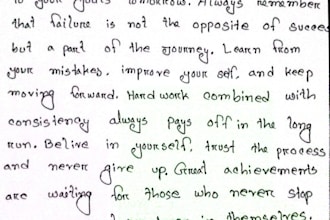 to your goals tomorrow. Always remember
that failure is not the opposite of success
but a part of the journey. Learn from
your mistakes. improve your self. and keep
moving forward. Hard work combined with
consistency always pays off in the long
run. Belive in yourself. trust the process
and never give up. Great achievements
are waiting for those who never stop
in themselves.